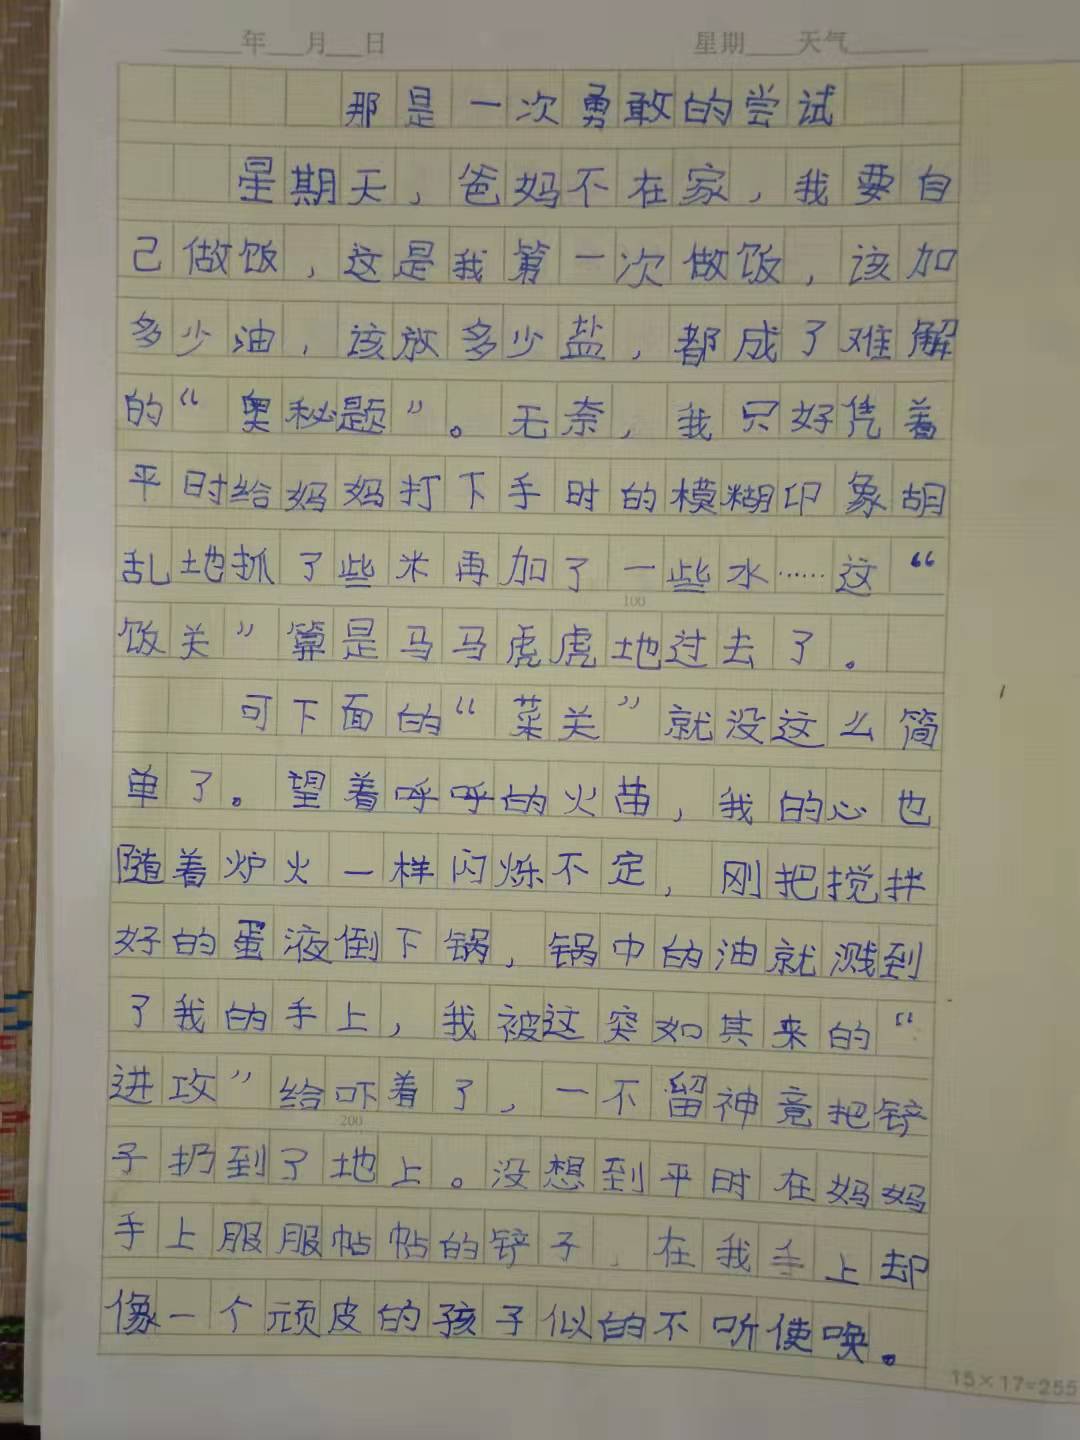 年 月 日 星期 天气
那是一次勇敢的尝试
星期天，爸妈不在家，我要自
己做饭，这是我第一次做饭，该加
多少油，该放多少盐，都成了难解
的“奥秘题”。无奈，我只好凭着
平时给妈妈打下手时的模糊印象胡
乱地抓了些米再加了一些水……这“
100
饭关”算是马马虎虎地过去了。
可下面的“菜关”就没这么简
单了。望着呼呼的火苗，我的心也
随着炉火一样闪烁不定，刚把搅拌
好的蛋液倒下锅，锅中的油就溅到
了我的手上，我被这突如其来的“
进攻”给吓着了，一不留神竟把铲
200
子扔到了地上。没想到平时在妈妈
手上服服帖帖的铲子，在我手上却
像一个顽皮的孩子似的不听使唤。
15×17=255